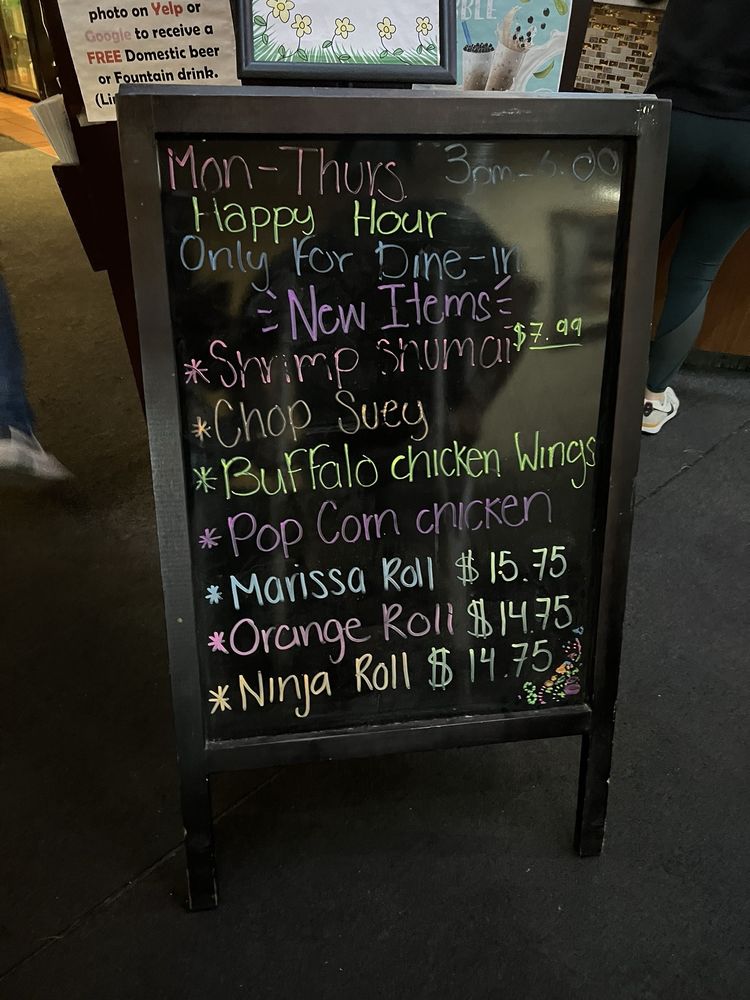 photo on Yelp or
Google to receive a
FREE Domestic beer
or Fountain drink.
BLE
Mon-Thurs 3pm-6:00
Happy Hour
Only For Dine-in
New Items
*Shrimp Shumai $7.99
*Chop Suey
*Buffalo chicken Wings
*Pop Corn chicken
*Marissa Roll $15.75
*Orange Roll $14.75
*Ninja Roll $14.75